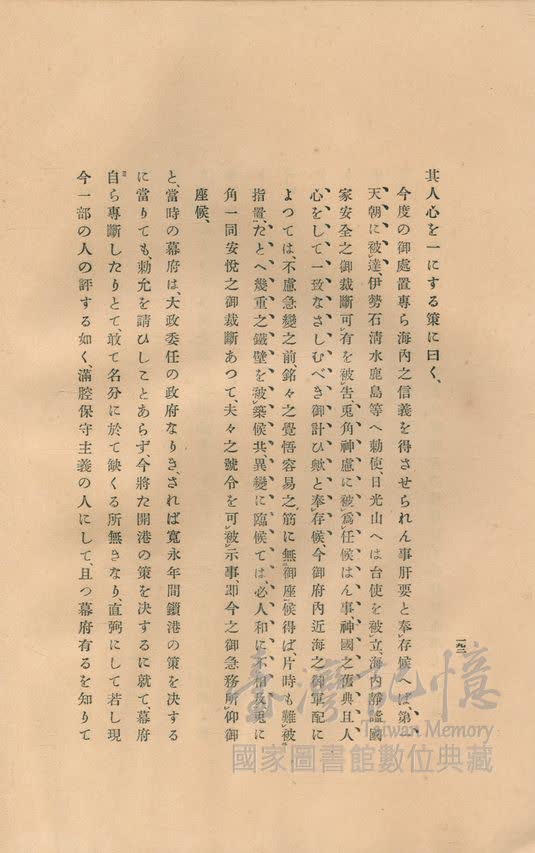 其人心を一にする策に曰く、
今度の御處置專ら海內之信義を得させられん事肝要と奉存候へは、第一
天朝に被達、伊勢石清水鹿島等へ勅使、日光山へは台使を被立、海內靜謐國
家安全之御裁斷可有を被告、兎角神慮に被爲任候はん事、神國之舊典且人
心をして一致なさしむべき御計ひ歟と奉存候、今御府內近海之御軍配に
よつては、不慮急變之前、銘々之覺悟容易之筋に無御座候得ば、片時も難被
指置、たとへ幾重之鐵壁を被築候共、異變に臨候ては、必人和に不相及、兎に
角一同安悅之御裁斷あつて、夫々之號令を可被示事、卽今之御急務所仰御
座候、
と、當時の幕府は、大政委任の政府なりき、されば寬永年間鎖港の策を決する
に當りても、勅允を請ひしことあらず、今將た開港の策を決するに就て幕府
自ら專斷したりとて、敢て名分に於て缺くる所無きなり、直弼にして若し現
今一部の人の評する如く、滿腔保守主義の人にして、且つ幕府有るを知りて
臺灣記憶
Taiwan Memory
國家圖書館數位典藏